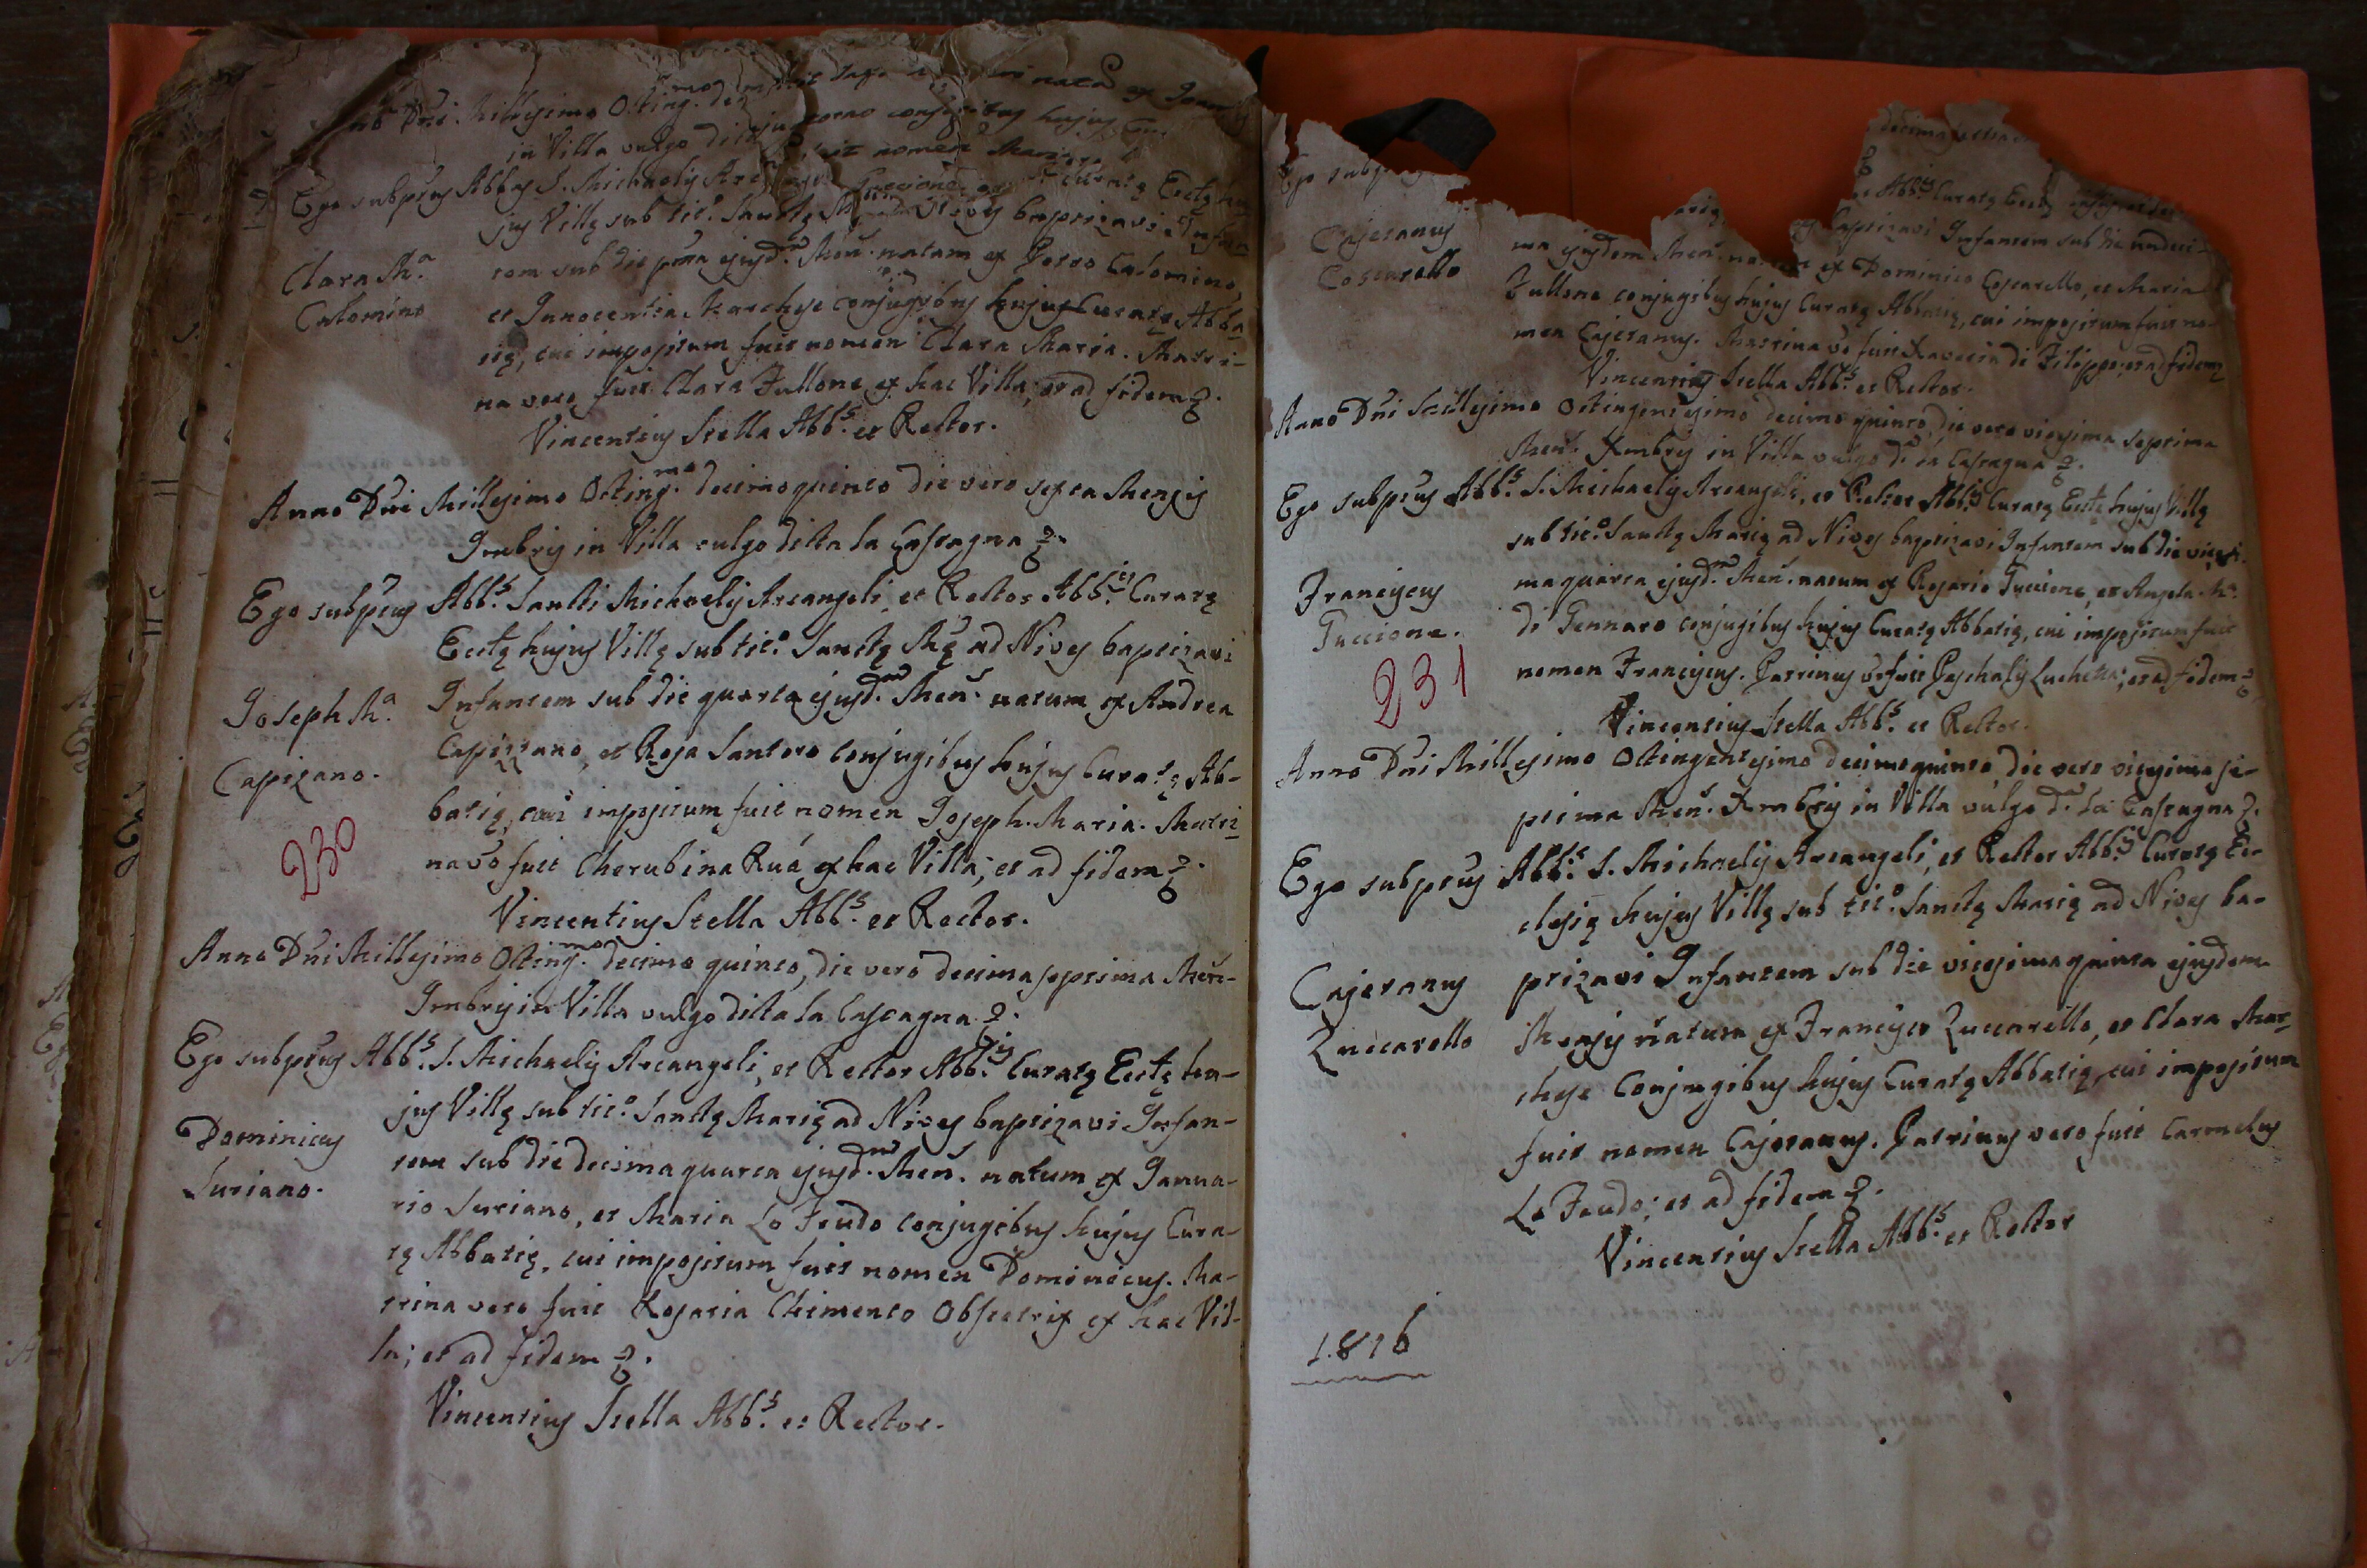 Dni. Millesimo Octing.mo
in Villa vulgo
nomen
Ego subptus Abbas S. Michaelis Curatę Ecctę hu-
jus Villę sub tit.o Sanctę ad Nives baptizavi Infan-
Clara M.a
tem sub die pma ejusd.m Men. natam ex Petro Calomino,
Calomino
et Innocentia Marchese conjugibus hujus Curatę Abba-
tię, cui impositum fuit nomen Clara Maria. Matri-
na vero fuit Clara Fullone ex hac Villa; et ad fidem
Vincentius Stella Abb.s et Rector.
Anno Dni Millesimo Octing.mo decimo quinto die vero sexta Mensis
Xmbris in Villa vulgo dicta la Castagna
Ego subptus Abb.s Sancti Michaelis Arcangeli, et Rector Abb.is Curatę
Ecctę hujus Villę sub tit.o Sanctę Mę ad Nives baptizavi
Joseph M.a
Infantem sub die quarta ejusd.m Men. natum ex Andrea
Capizano.
Capizzano, et Rosa Santoro conjugibus hujus Curatę Ab-
batię, cui impositum fuit nomen Joseph. Maria. Matri-
230
na vo fuit Cherubina Ruá ex hac Villa; et ad fidem
Vincentius Stella Abb.s et Rector.
Anno Dni Millesimo Octing.mo decimo quinto, die vero decima septima Men-
Xmbris in Villa vulgo dicta la Castagna
Ego subptus Abb.s S. Michaelis Arcangeli, et Rector Abb.is Curatę Ecctę hu-
jus Villę sub tit.o Sanctę Marię ad Nives baptizavi Infan-
Dominicus
tem sub die decima quarta ejusd.m Men. natum ex Janua-
Suriano.
rio Suriano, et Maria Lo Feudo conjugibus hujus Cura-
tę Abbatię, cui impositum fuit nomen Dominicus. Ma-
trina vero fuit Rosaria Chimento Obstetrix ex hac Vil-
la; et ad fidem
Vincentius Stella Abb.s et Rector.
decima
Ego
Abb.is Curatę
baptizavi Infantem sub die undeci-
Cajetanus
ma ejusdem Men. ex Dominico Coscarello, et Maria
Coscarello
Fullone conjugibus hujus Curatę Abbatię, cui impositum fuit no-
men Cajetanus. Matrina vo fuit Xaveria di Filippo; et ad fidem
Vincentius Stella Abb.s et Rector.
Anno Dni Millesimo Octingentesimo decimo quinto, die vero vigesima septima
Men. Xmbris in Villa vulgo d.a la Castagna
Ego subptus Abb.s S. Michaelis Arcangeli, et Rector Abb.is Curatę Ecctę hujus Villę
sub tit.o Sanctę Marię ad Nives baptizavi Infantem sub die vigesi-
Franciscus
ma quarta ejusd.m Men. natum ex Rosario Tuccione, et Angela M.a
Tuccione.
di Gennaro conjugibus hujus Curatę Abbatię, cui impositum fuit
231
nomen Franciscus. Patrinus vo fuit Paschalis Luchetta; et ad fidem
Vincentius Stella Abb.s et Rector.
Anno Dni Millesimo Octingentesimo decimo quinto, die vero vigesima se-
ptima Men. Xmbris in Villa vulgo d.a la Castagna
Ego subptus Abb.s S. Michaelis Arcangeli, et Rector Abb.is Curatę Ec-
clesię hujus Villę sub tit.o Sanctę Marię ad Nives ba-
Cajetanus
ptizavi Infantem sub die vigesima quinta ejusdem
Zuccarello
Mensis natum ex Francisco Zuccarello, et Clara Mar-
chese Conjugibus hujus Curatę Abbatię, cui impositum
fuit nomen Cajetanus. Patrinus vero fuit Carmelus
Lo Feudo; et ad fidem
Vincentius Stella Abb.s et Rector
1816